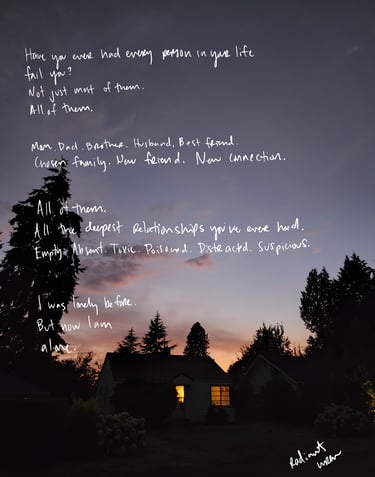 Have you ever had every person in your life
fail you?
Not just most of them.
All of them.
Mom. Dad. Brother. Husband. Best friend.
Chosen family. New friend. New connection.
All of them.
All the deepest relationships you've ever had.
Empty. Absent. Toxic. Poisoned. Distracted. Suspicious.
I was lonely before.
But now I am
alone.
Radiant